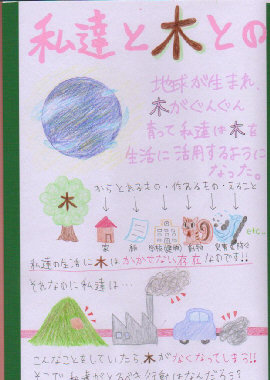 私達と木との
地球が生まれ、
木がぐんぐん
育って私達は木を
生活に活用するように
なった。
木
からとれるもの・作れるもの・すること
家
紙
動物
etc...
私達の生活に木はかかせない存在なのです!!
それなのに私達は…
こんなことをしていたら木がなくなってしまう!!
そこで私達がとるべき行動はなんだろう?